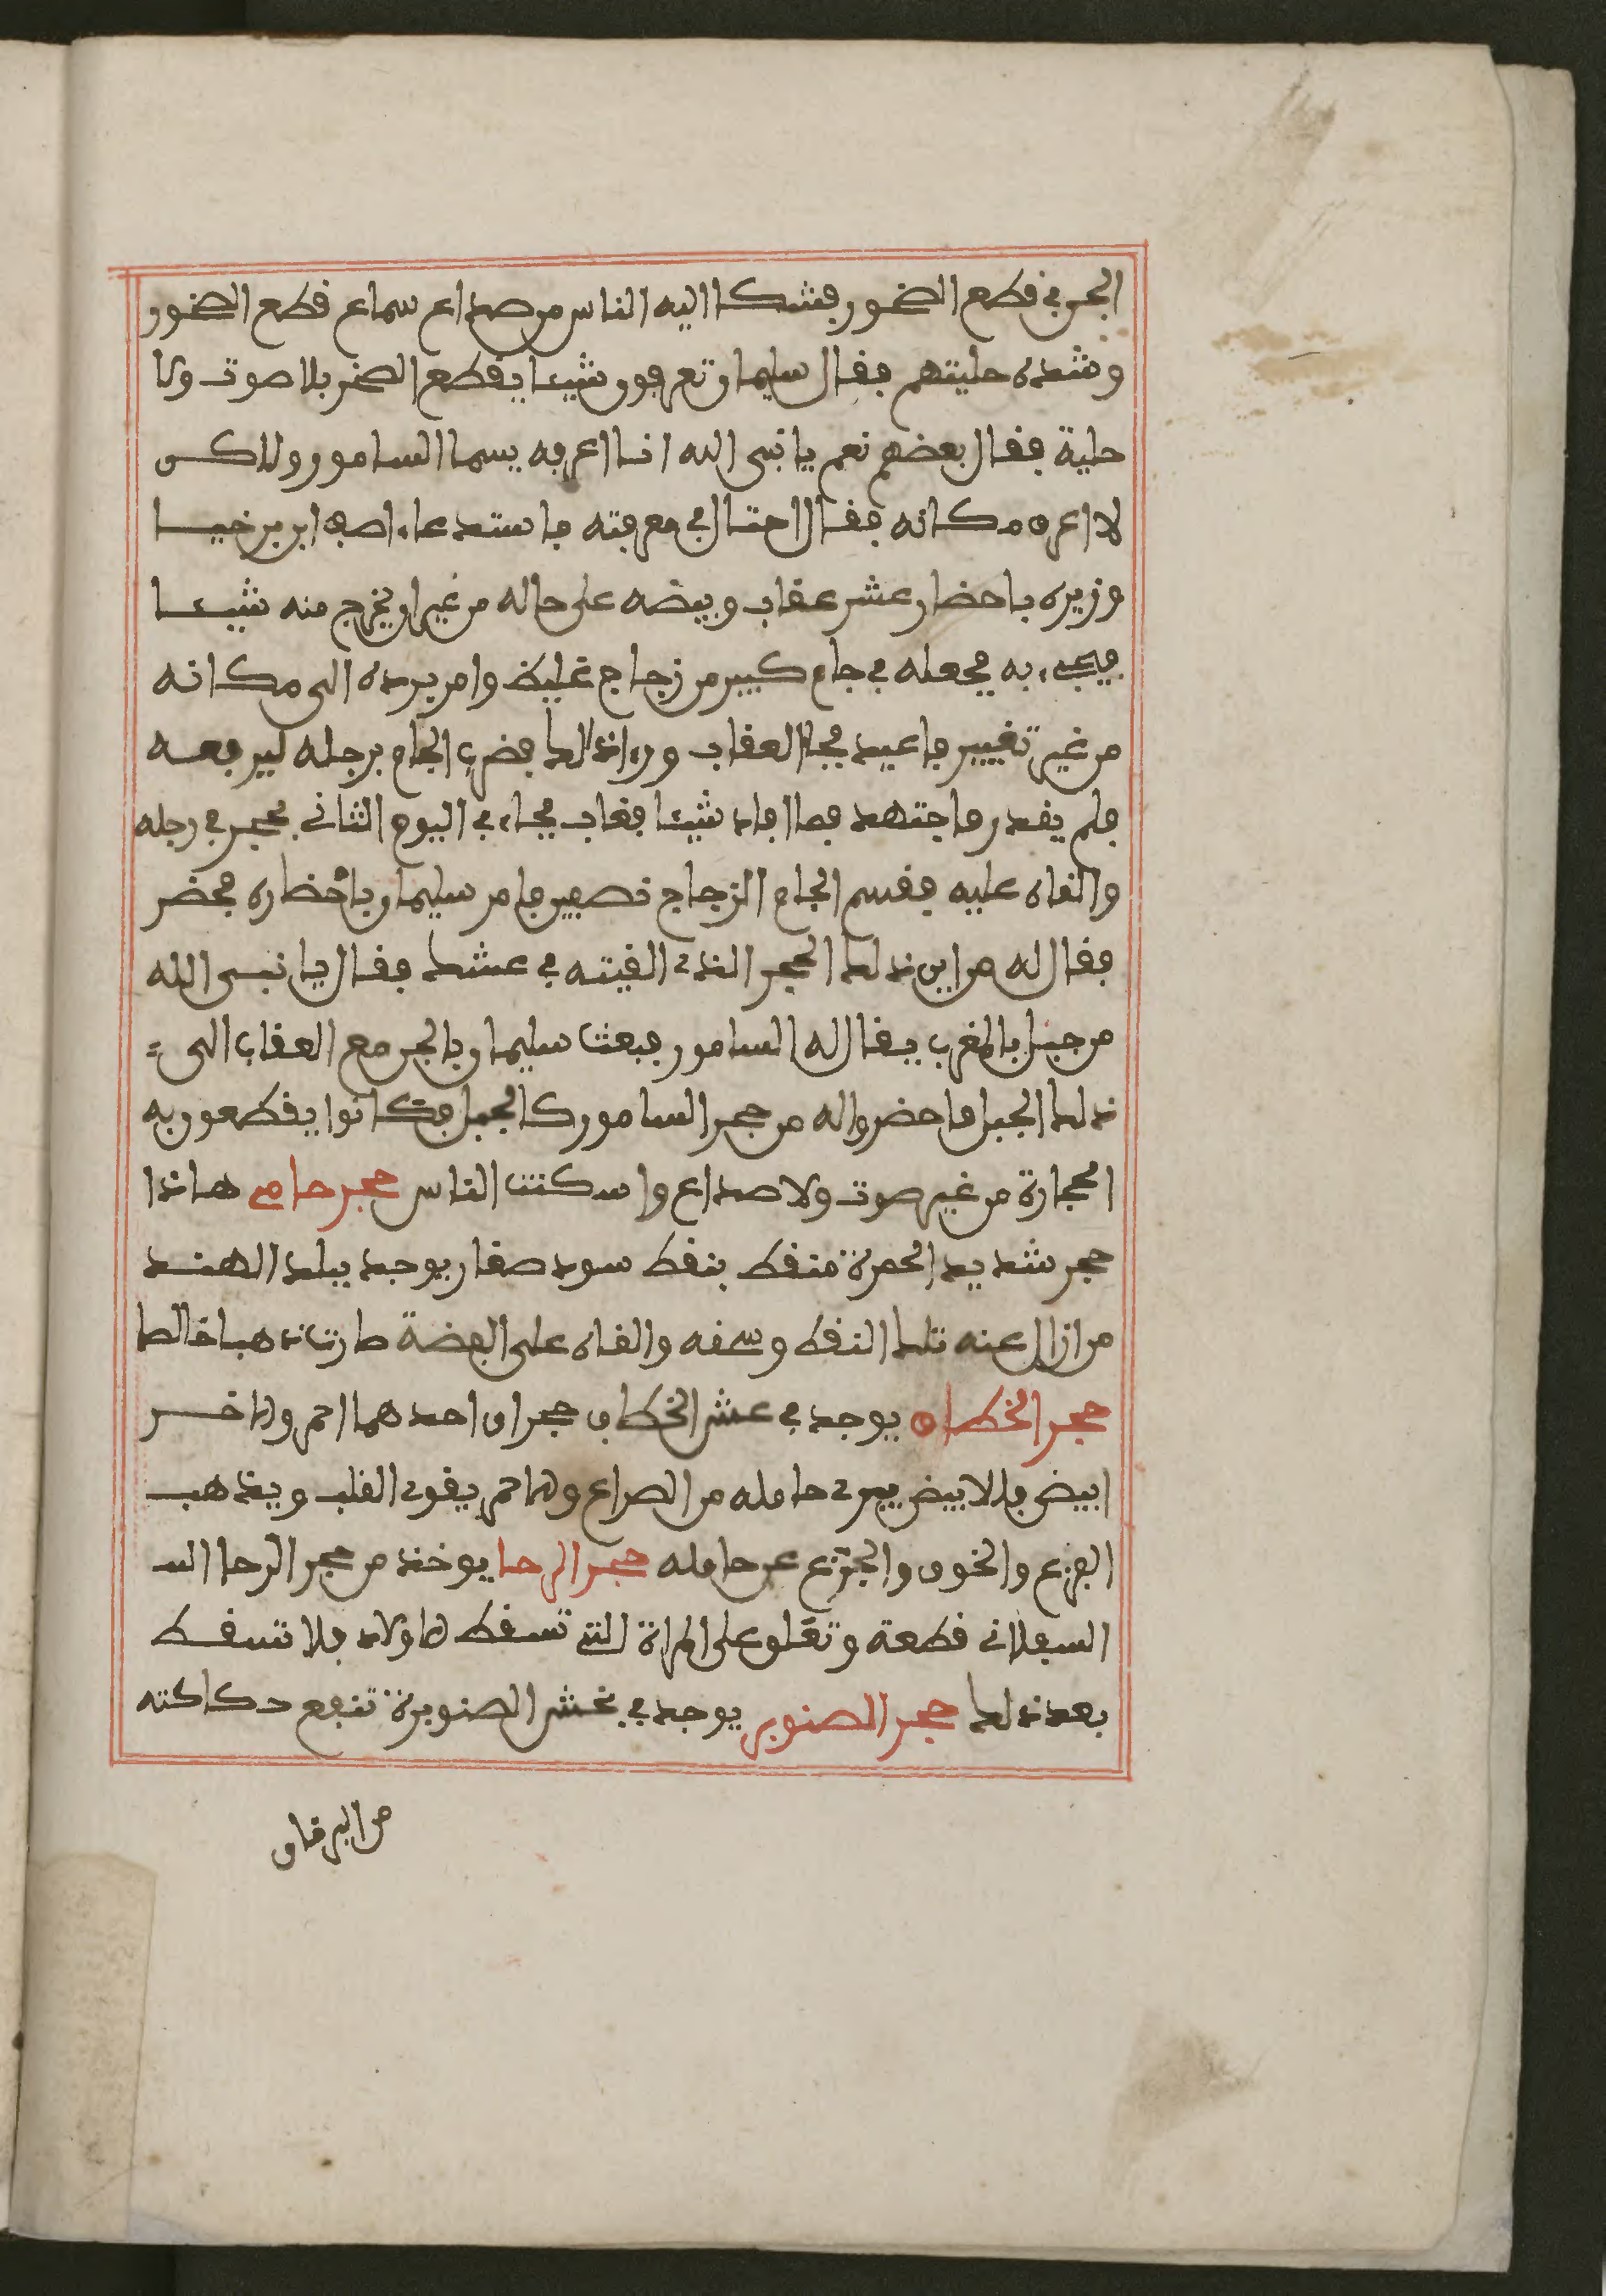 الجن في قطع الصخور فشكا اليه الناس من صداع سماع قطع الصخور
وشدة حليتهم فقال سليمان تعرفون شيئا يقطع الصخر بلا صوت ولا
حلية فقال بعضهم نعم يا نبي الله انا اعرفه يسما السامور ولاكن
لا اعرف مكانه فقال احتال في معرفته فاستدعاء اصف ابن برخيا
وزيره باحضار عش عقاب وبيضه على حاله من غير ان يخرج منه شيئا
فجيء به فجعله في جام كبير من زجاج غليظ وامر برده الى مكانه
من غير تغيير فاعيد فجاء العقاب وراء ذالك فضرب الجام برجله ليرفعه
فلم يقدر فاجتهد فما افاد شيئا فغاب فجاء في اليوم الثاني بحجر في رجله
والقاه عليه فقسم الجام الزجاج نصفين فامر سليمان باحضاره فحضر
فقال له من اين ذلك الحجر الذي القيته في عشك فقال يا نبي الله
من جبل بالمغرب يقال له السامور فبعث سليمان بالجن مع العقاب الى
ذلك الجبل فاحضروا له من حجر السامور كالجبل فكانوا يقطعون به
الحجارة من غير صوت ولا صداع واسكتت الناس حجر حامي هاذا
حجر شديد الحمرة منقط بنقط سود صغار يوجد ببلد الهند
من ازال عنه تلك النقط وسحقه والقاه على الفضة صارت ذهبا خالصا
حجر الخطاف يوجد في عش الخطاف حجران احدهما احمر والاخر
ابيض فالابيض يبرئ حامله من الصراع والاحمر يقوي القلب ويذهب
الفزع والخوف والجزع عن حامله حجر الرحا يوخذ من حجر الرحا الس
السفلاني قطعة وتعلق على المراة التي تسقط الاولاد فلا تسقط
بعد ذلك حجر الصنوبر يوجد في خشر الصنوبرة تنفع حكاكته
من اليرقان